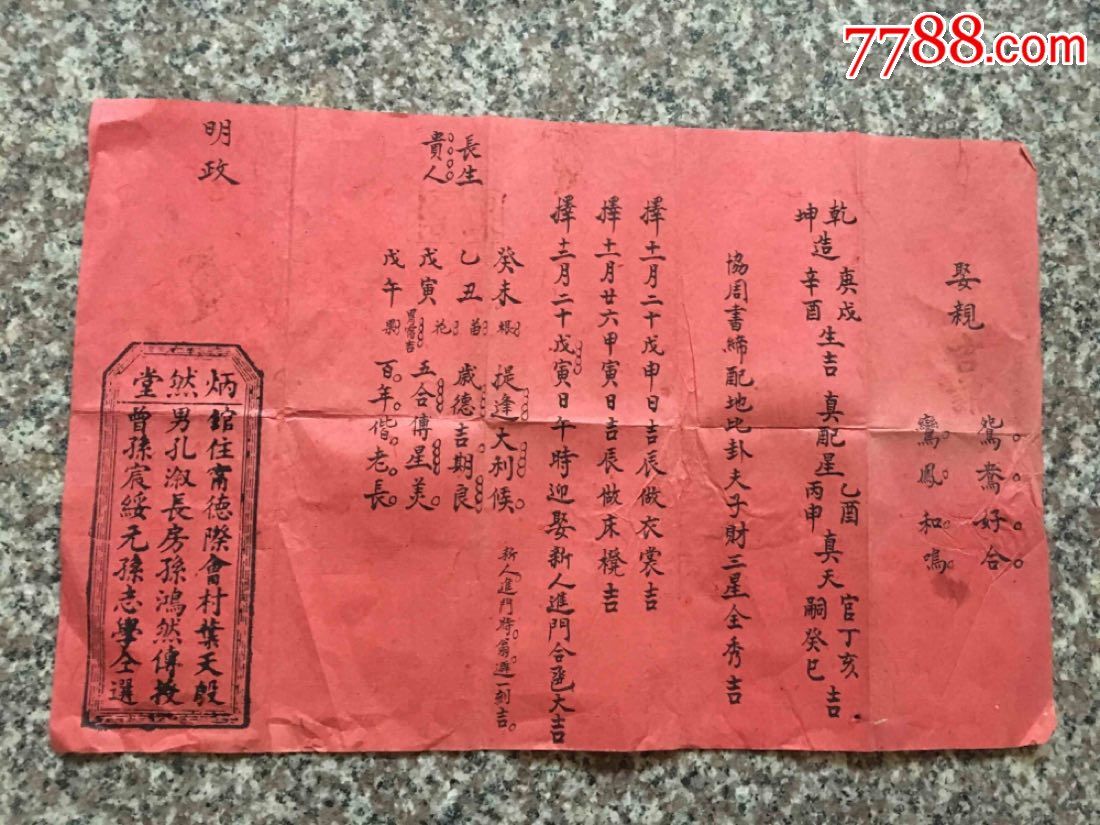 7788.com
娶親吉
鴛鴦好合
鸞鳳和鳴
乾造 庚戌 生吉 真配星 乙酉 真天官 丁亥 吉
坤造 辛酉 生吉 真配星 丙申 真天嗣 癸巳 吉
協周書締配地比卦夫子財三星全秀吉
擇十一月二十戊申日吉辰做衣裳吉
擇十一月廿六甲寅日吉辰做床櫈吉
擇十二月二十戊寅日午時迎娶新人進門合巹大吉
新人進門時翁避一刻吉
癸未 根 提逢大利候
長生 乙丑 苗 歲德吉期良
貴人 戊寅 花 五合傳星美
戊午 菓 百年偕老長
明政
炳然堂
館住甯德際會村葉天殷
男孔淑長房孫鴻然傳授
曾孫宸綏元孫志學仝選